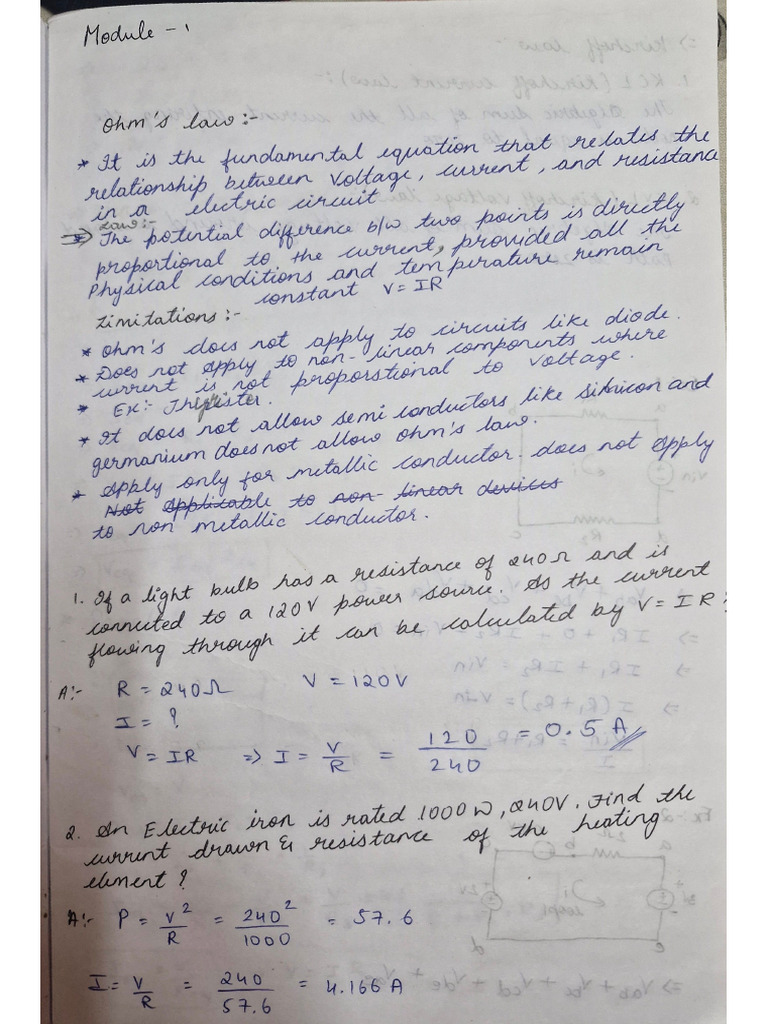 Module - 1
Ohm's law :-
* It is the fundamental equation that relates the
relationship between Voltage, current, and resistance
in a electric circuit
Law:-
The potential difference b/w two points is directly
proportional to the current, provided all the
physical conditions and temperature remain
constant V = IR
Limitations :-
* Ohm's does not apply to circuits like diode.
* Does not apply to non-linear components where
current is not proporstional to voltage.
* Ex:- Thyrister.
* It does not allow semi conductors like silicon and
germanium does not allow ohm's law.
* Apply only for metallic conductor. does not apply
Not Applicable to non-linear devices
to non metallic conductor.
1. If a light bulb has a resistance of 240Ω and is
connected to a 120V power source. As the current
flowing through it can be calculated by V = IR
A:- R = 240Ω V = 120V
I = ?
V = IR => I = V/R = 120/240 = 0.5 A
2. An Electric iron is rated 1000W, 240V. Find the
current drawn & resistance of the heating
element ?
A:- P = V²/R = 240²/1000 = 57.6
I = V/R = 240/57.6 = 4.166 A